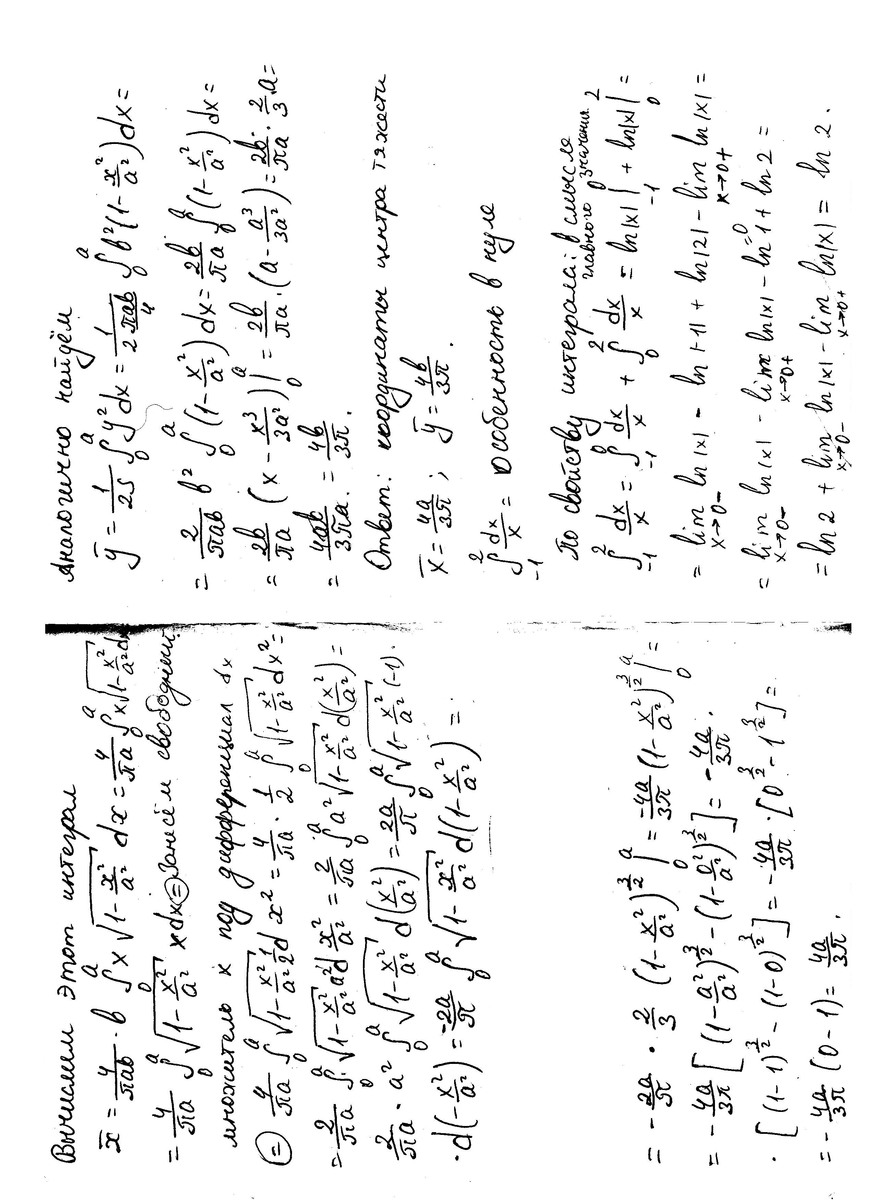 Вычислим этот интеграл
x̄ = 4/(πab) · b ∫₀ᵃ x √(1 - x²/a²) dx = 4/(πa) ∫₀ᵃ x √(1 - x²/a²) dx
= 4/(πa) ∫₀ᵃ √(1 - x²/a²) x dx (=) Занесём свободный
множитель x под дифференциал dx
(=) 4/(πa) ∫₀ᵃ √(1 - x²/a²) 1/2 d x² = 4/(πa) · 1/2 ∫₀ᵃ √(1 - x²/a²) dx² =
= 2/(πa) ∫₀ᵃ √(1 - x²/a²) a² d x²/a² = 2/(πa) ∫₀ᵃ a² √(1 - x²/a²) d(x²/a²) =
2/(πa) · a² ∫₀ᵃ √(1 - x²/a²) d(x²/a²) = 2a/π ∫₀ᵃ √(1 - x²/a²) (-1) ·
· d(-x²/a²) = -2a/π ∫₀ᵃ √(1 - x²/a²) d(1 - x²/a²) =
= -2a/π · 2/3 (1 - x²/a²)^(3/2) |₀ᵃ = -4a/3π (1 - x²/a²)^(3/2) |₀ᵃ =
= -4a/3π [(1 - a²/a²)^(3/2) - (1 - 0²/a²)^(3/2)] = -4a/3π ·
· [(1-1)^(3/2) - (1-0)^(3/2)] = -4a/3π · [0^(3/2) - 1^(3/2)] =
= -4a/3π (0 - 1) = 4a/3π.
Аналогично найдём
ȳ = 1/2S ∫₀ᵃ y² dx = 1/(2 πab/4) ∫₀ᵃ b² (1 - x²/a²) dx =
= 2/(πab) b² ∫₀ᵃ (1 - x²/a²) dx = 2b/(πa) ∫₀ᵃ (1 - x²/a²) dx =
= 2b/(πa) (x - x³/3a²) |₀ᵃ = 2b/(πa) · (a - a³/3a²) = 2b/(πa) · 2/3 a =
= 4ab/3πa = 4b/3π.
Ответ: координаты центра тяжести
x̄ = 4a/3π ; ȳ = 4b/3π.
∫₋₁² dx/x = особенность в нуле
по свойству интеграла: в смысле
главного значения
∫₋₁² dx/x = ∫₋₁⁰ dx/x + ∫₀² dx/x = ln|x| |₋₁⁰ + ln|x| |₀² =
= lim x→0- ln|x| - ln|-1| + ln|2| - lim x→0+ ln|x| =
= lim x→0- ln|x| - lim x→0+ ln|x| - ln 1 =0 + ln 2 =
= ln 2 + lim x→0- ln|x| - lim x→0+ ln|x| = ln 2.